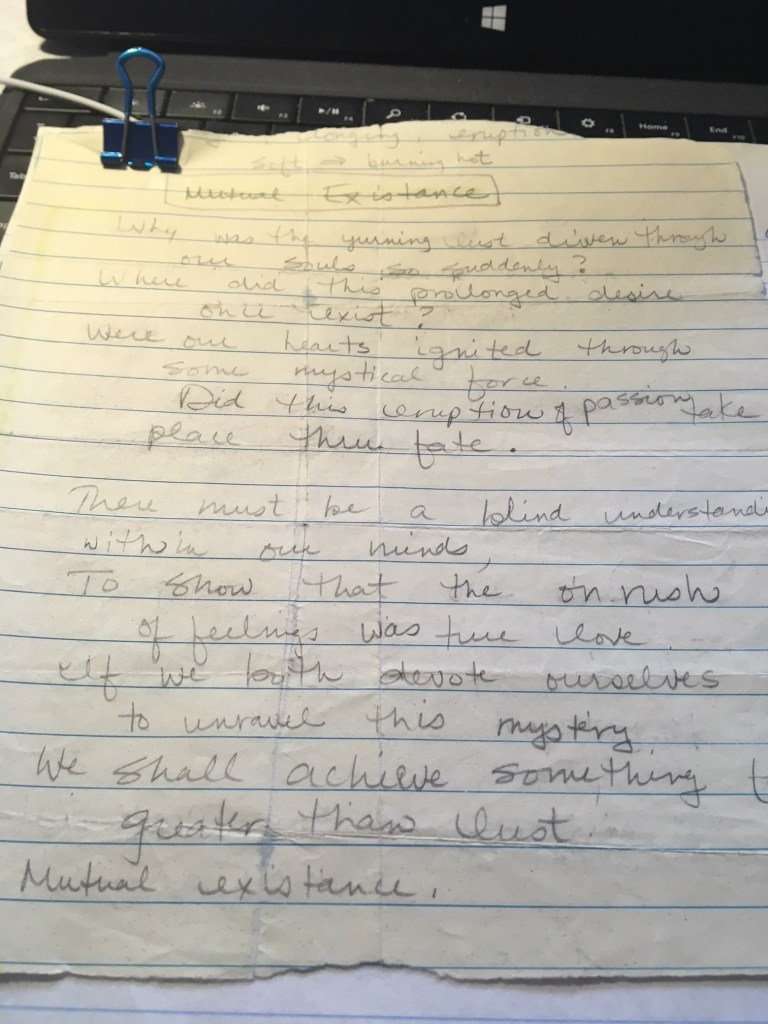 longing, eruption
soft → burning hot
Mutual Existance
Why was the yurning lust driven through
our souls so suddenly?
Where did this prollonged desire
once exist?
Were our hearts ignited through
some mystical force.
Did this eruption of passion take
place thru fate.
There must be a blind understandi
within our minds,
To show that the onrush
of feelings was true love.
If we both devote ourselves
to unravel this mystery
We shall achieve something
greater than lust.
Mutual existance.
F2
F4
F8
Home
F9
End
F10
Tab